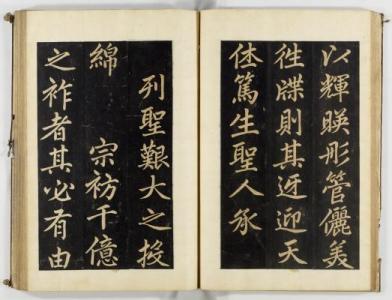 以輝暎彤管儷美
徃牒則其迓迎天
休篤生聖人承
列聖艱大之投
綿　宗祊千億
之祚者其必有由